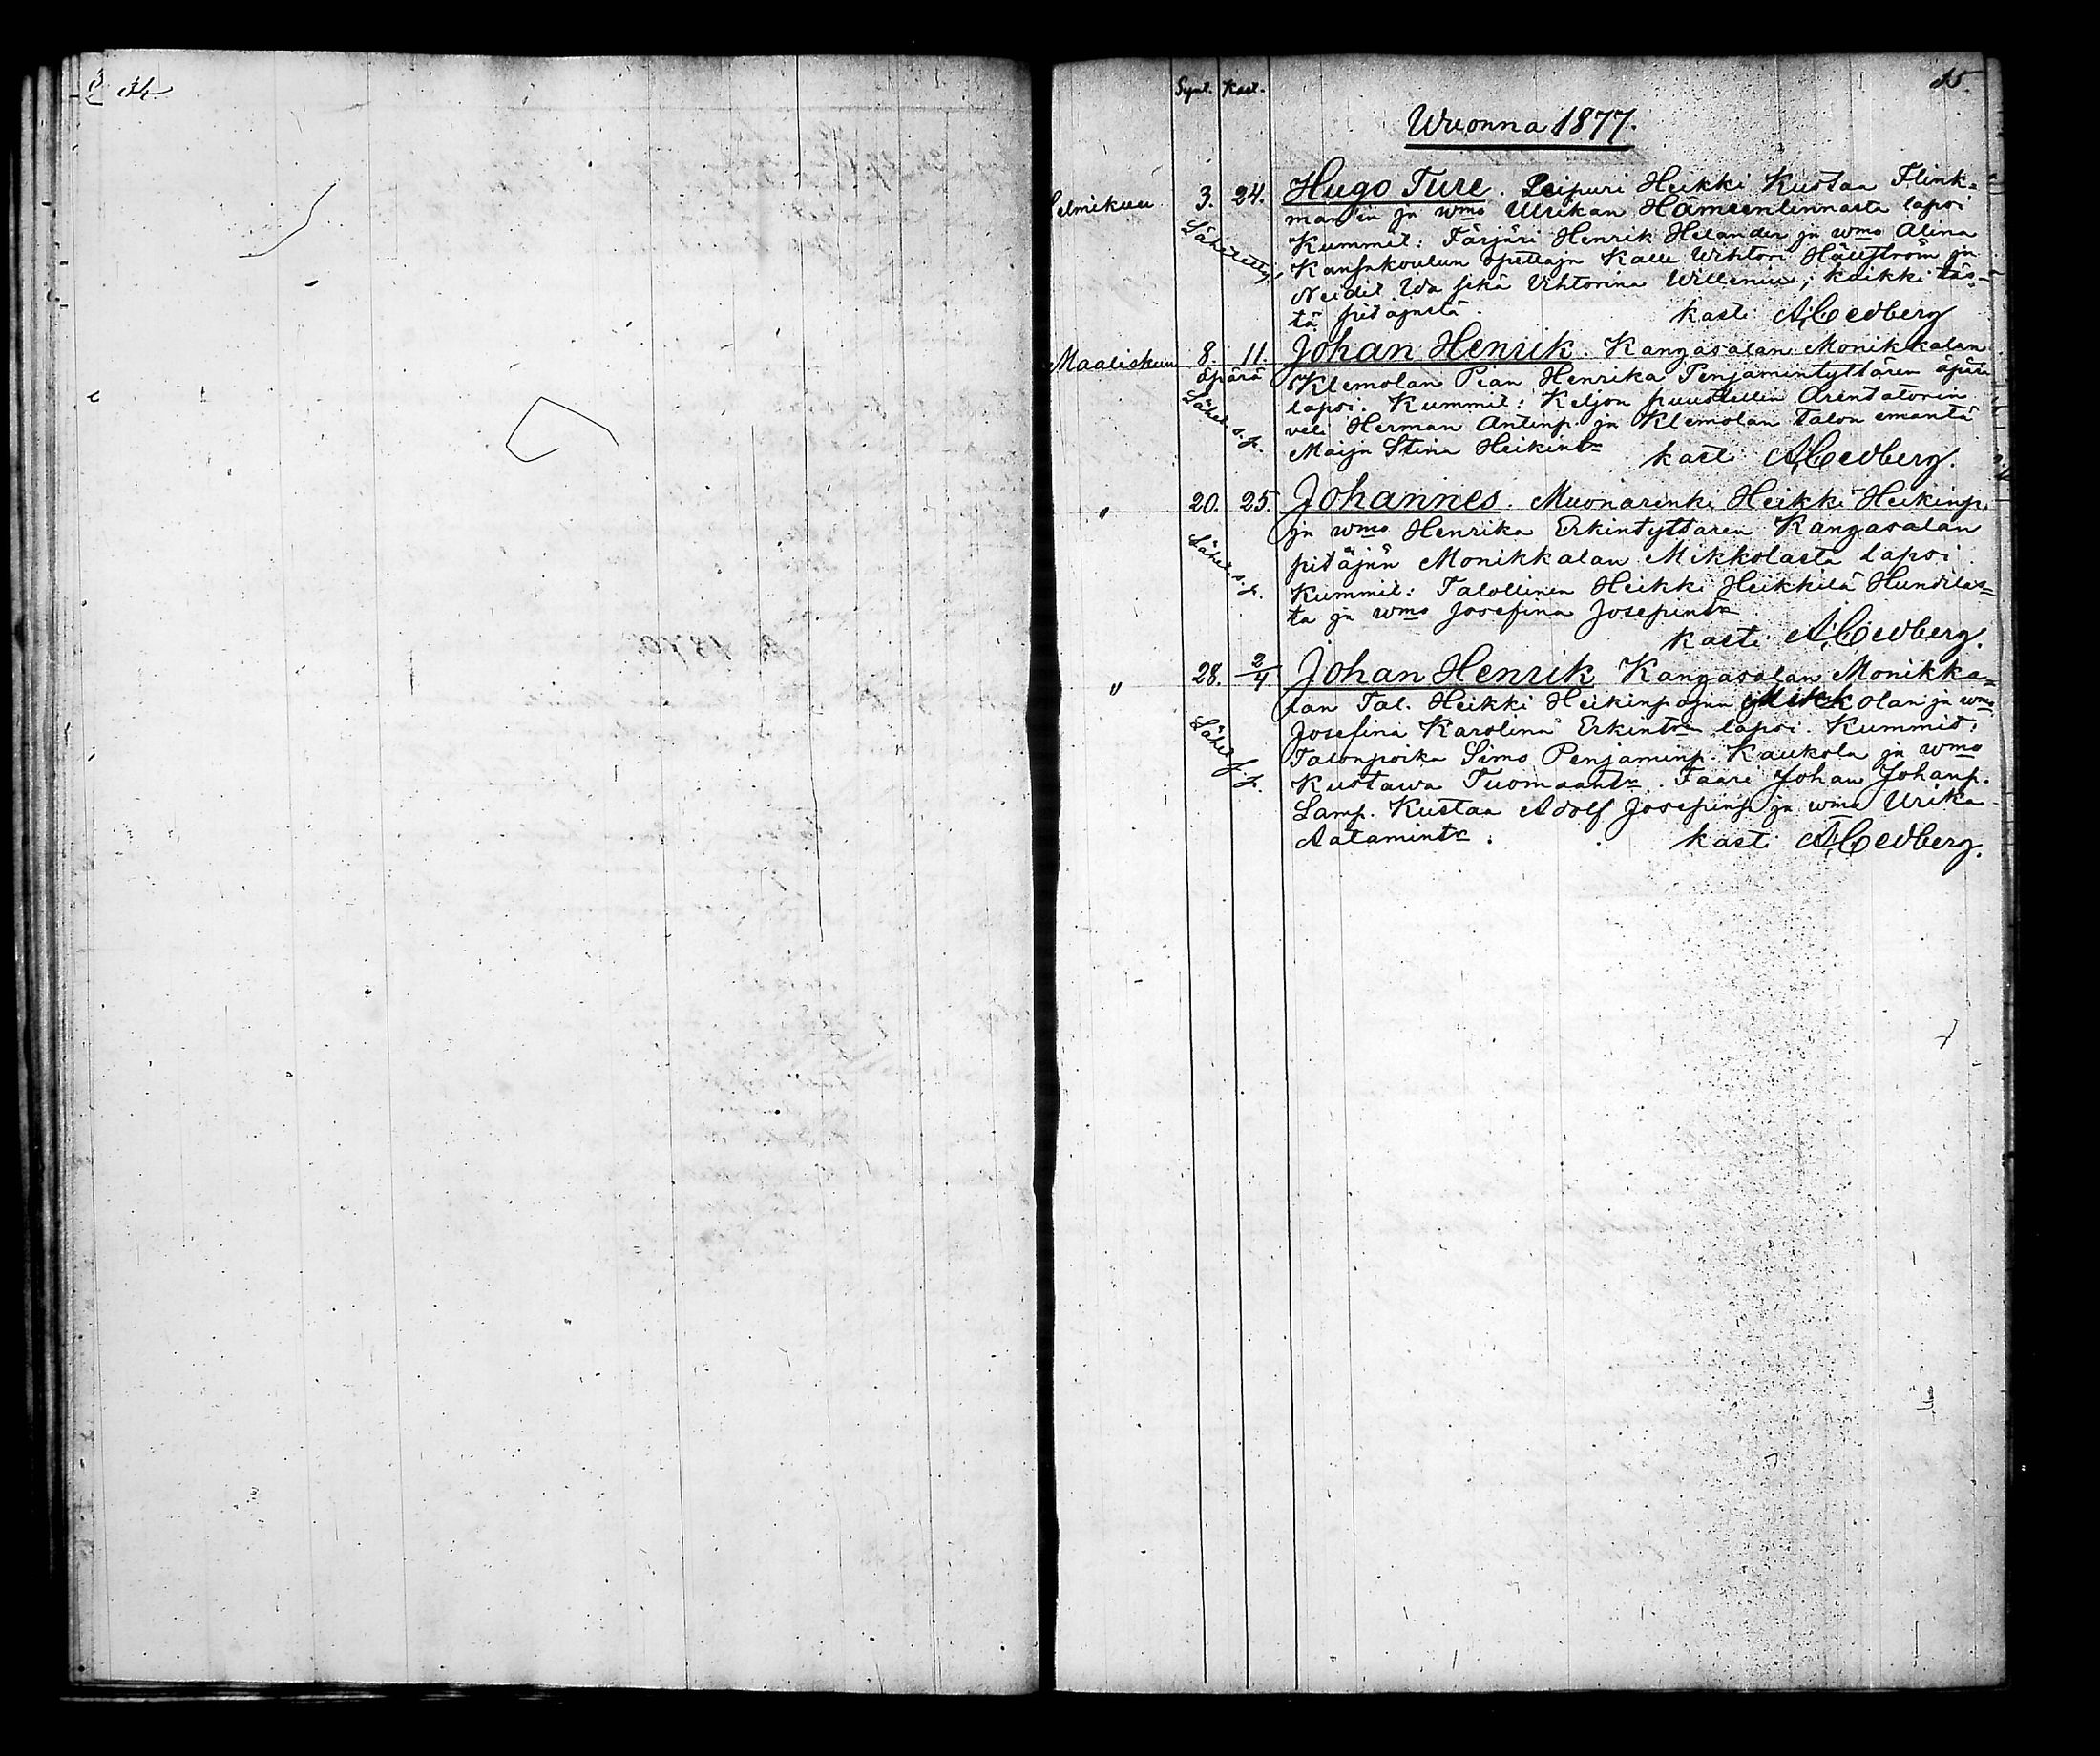 Synt. Kast.
15.
Wuonna 1877.
Helmikuu 3. 24. Hugo Ture. Leipuri Heikki Kustaa Flink-
man'in ja wmo Ulrikan Hämeenlinnasta lapsi
Lähetetty. Kummit: Färjäri Henrik Helander ja wmo Alina
Kansakoulun opettaja Kalle Wihtori Hällström ja
Neidit Ida sekä Wihtorina Willenius; kaikki täs-
tä pitäjästä. kasti A Cedberg
Maaliskuu 8. 11. Johan Henrik. Kangasalan Monikkalan
äpärä Klemolan Pian Henrika Penjamintyttären äpärä
Lähet. s. k. lapsi. Kummit: Keljon puustellin Arentatorin
veli Herman Antinp. ja Klemolan talon emäntä
Maija Stina Heikintr kasti A Cedberg.
" 20. 25. Johannes. Muonarenki Heikki Heikinp.
ja wmo Henrika Erkintyttären Kangasalan
Lähet. s. k. pitäjän Monikkalan Mikkolasta lapsi
Kummit: Talollinen Heikki Heikkilä Hundilas-
ta ja wmo Josefina Josepintr
kasti A Cedberg.
" 28. 2/4. Johan Henrik Kangasalan Monikka-
lan Tal. Heikki Heikinpojan Mikkolan ja wmo
Lähet. s. k. Josefina Karolina Erkintr lapsi. Kummit:
Talonpoika Simo Penjaminp. Kaukola ja wmo
Kustawa Tuomaantr. Faari Johan Johanp.
Lamp. Kustaa Adolf Josepinp ja wmo Ulrika
Aatamintr. kasti A Cedberg.